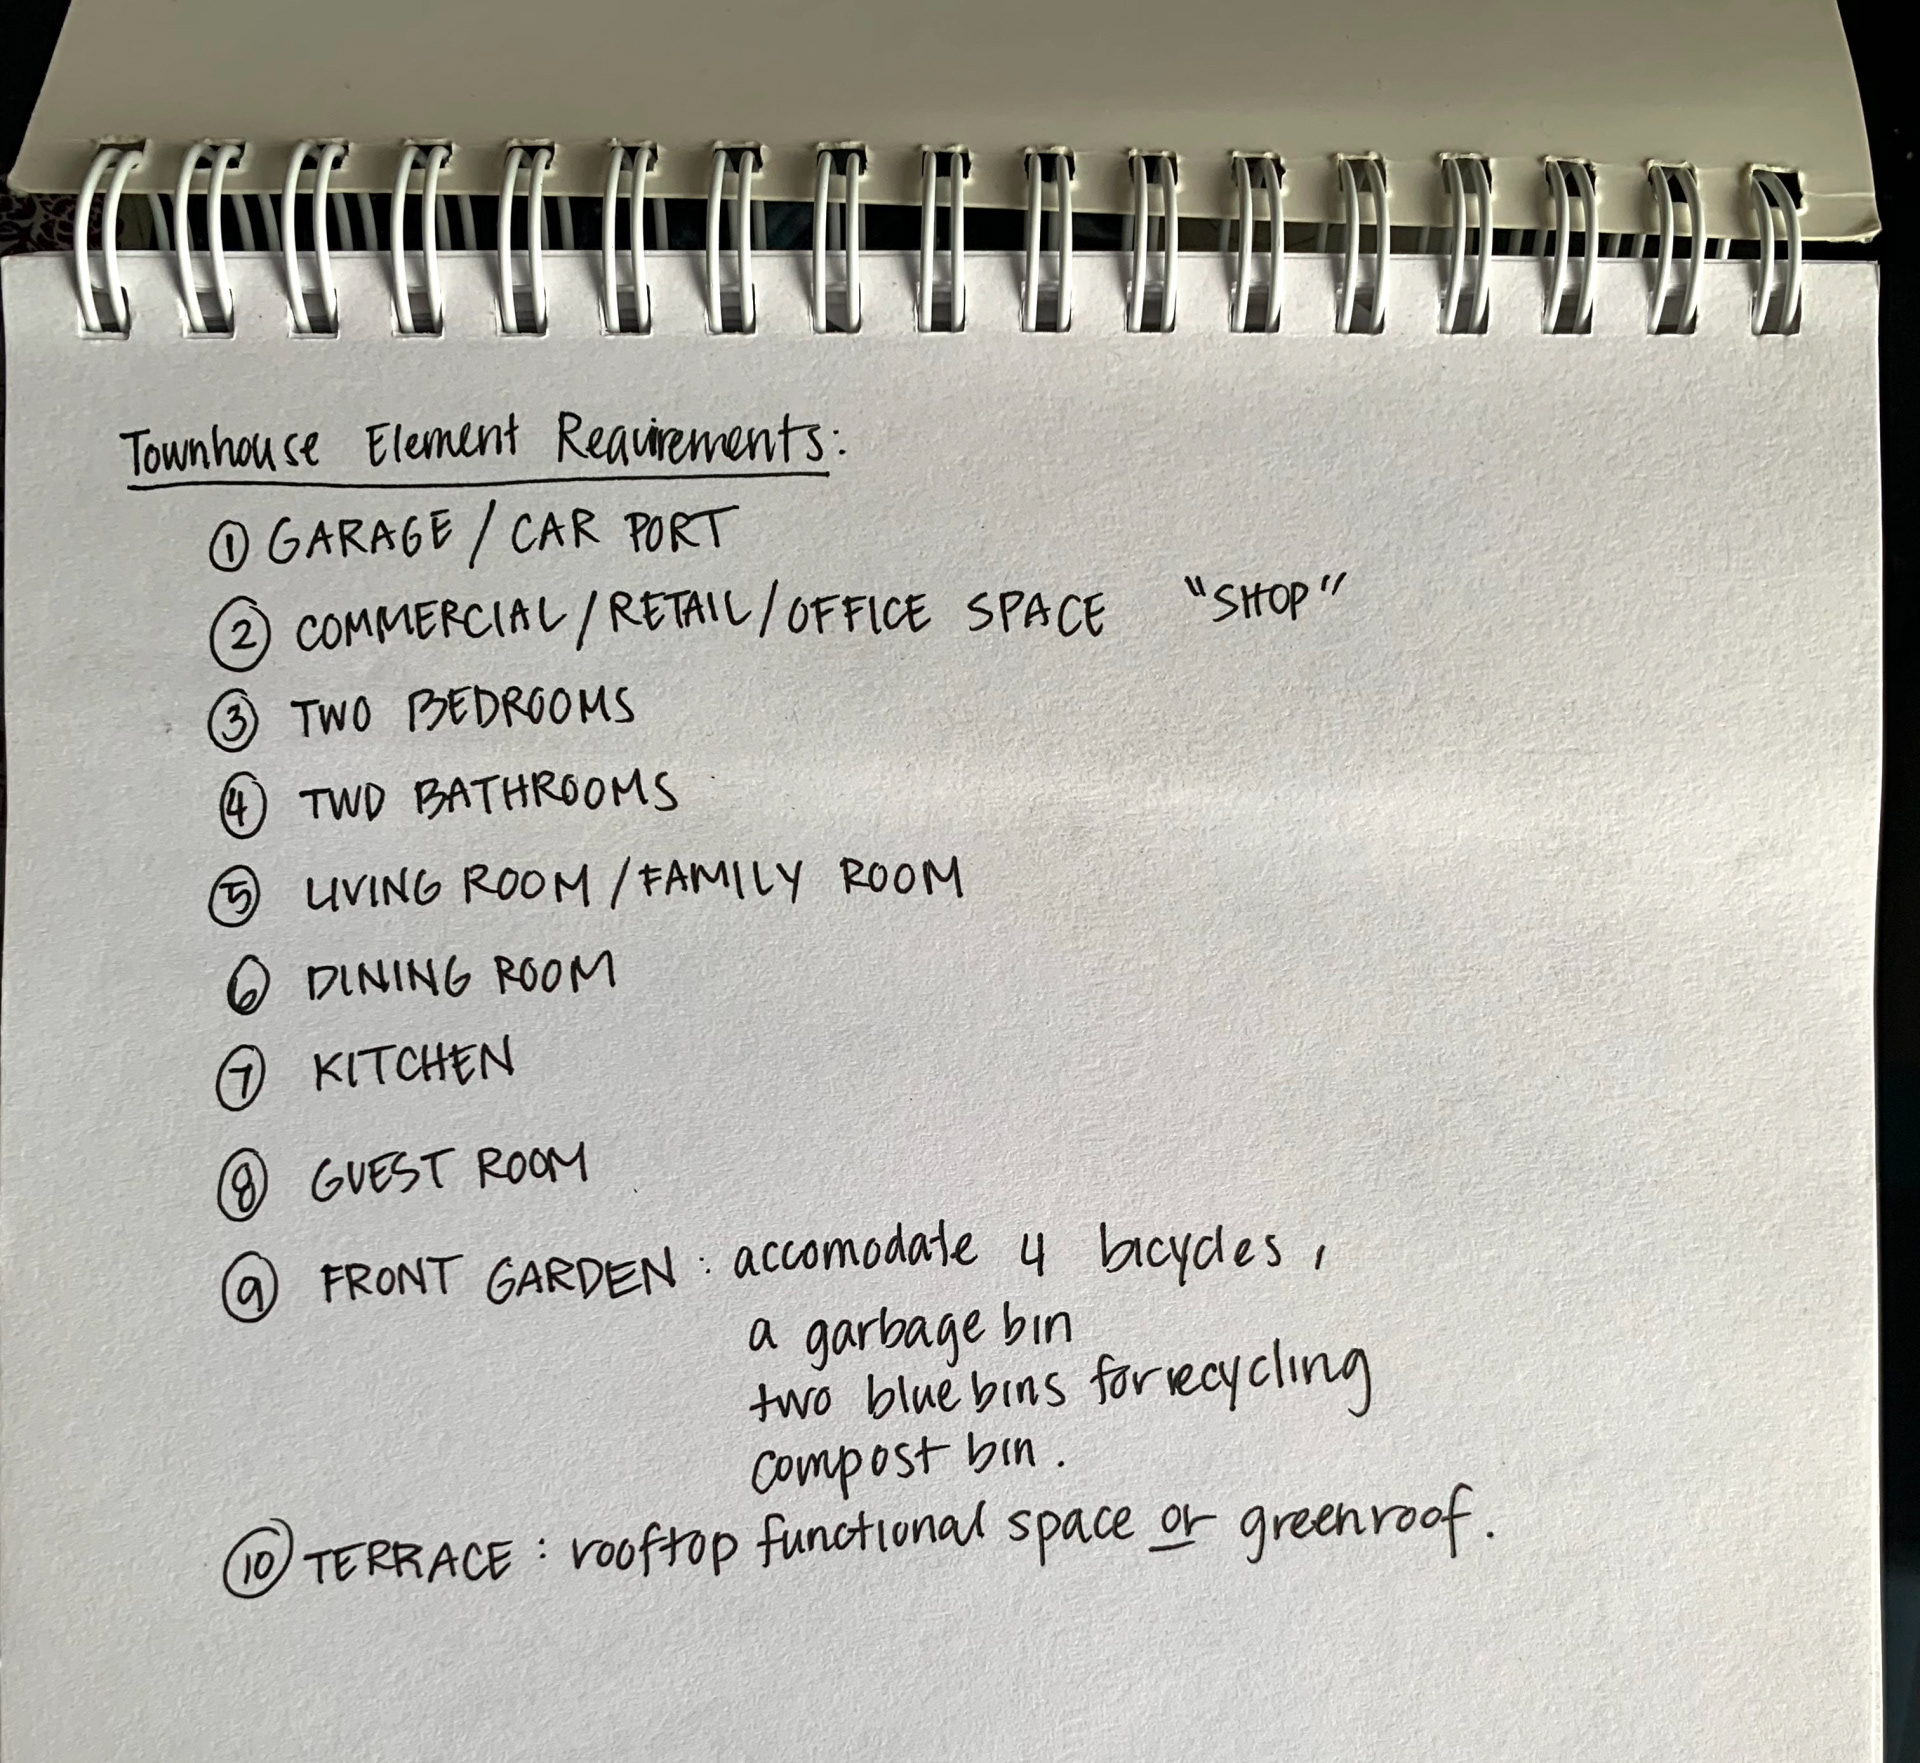 Townhouse Element Requirements:
① GARAGE / CAR PORT
② COMMERCIAL/RETAIL/OFFICE SPACE "SHOP"
③ TWO BEDROOMS
④ TWO BATHROOMS
⑤ LIVING ROOM / FAMILY ROOM
⑥ DINING ROOM
⑦ KITCHEN
⑧ GUEST ROOM
⑨ FRONT GARDEN : accomodate 4 bicycles ,
a garbage bin
two blue bins for recycling
compost bin .
⑩ TERRACE : rooftop functional space or greenroof .